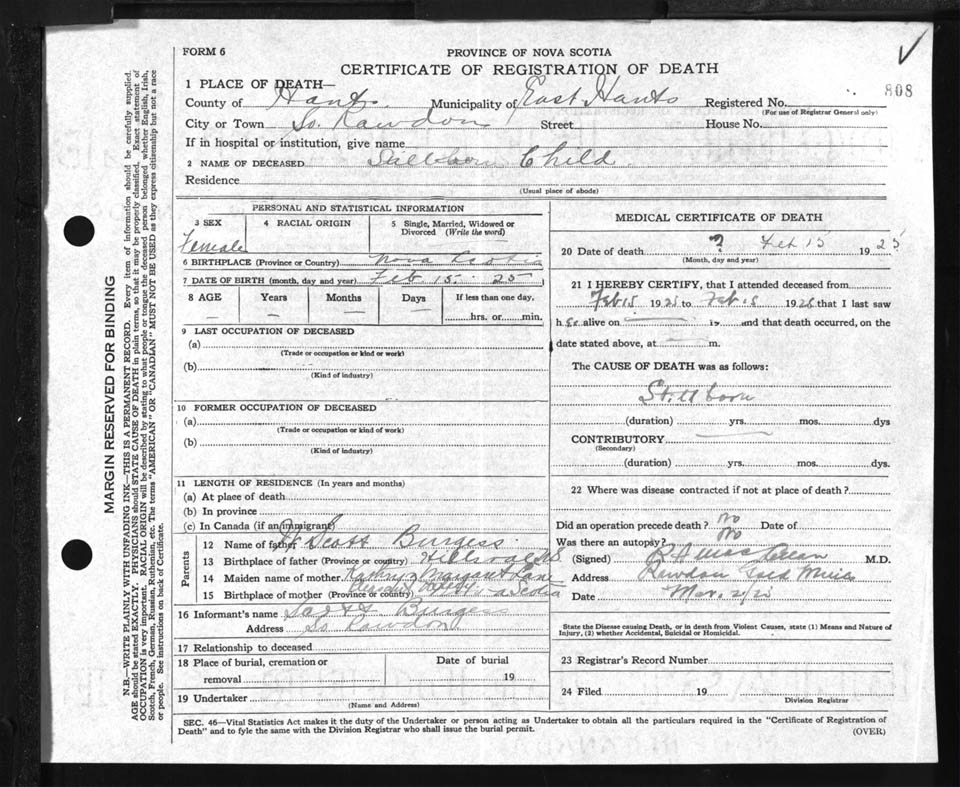 FORM 6
PROVINCE OF NOVA SCOTIA
CERTIFICATE OF REGISTRATION OF DEATH
808
1 PLACE OF DEATH—
County of Hants Municipality of East Hants Registered No.
(For use of Registrar General only)
City or Town So. Rawdon Street House No.
If in hospital or institution, give name
2 NAME OF DECEASED Stillborn Child
Residence
(Usual place of abode)
PERSONAL AND STATISTICAL INFORMATION
3 SEX 4 RACIAL ORIGIN 5 Single, Married, Widowed or Divorced (Write the word)
Female
6 BIRTHPLACE (Province or Country) Nova Scotia
7 DATE OF BIRTH (month, day and year) Feb. 15. 25
8 AGE Years Months Days If less than one day,
— — — hrs. or min.
9 LAST OCCUPATION OF DECEASED
(a)
(Trade or occupation or kind or work)
(b)
(Kind of industry)
10 FORMER OCCUPATION OF DECEASED
(a)
(Trade or occupation or kind of work)
(b)
(Kind of industry)
11 LENGTH OF RESIDENCE (In years and months)
(a) At place of death
(b) In province
(c) In Canada (if an immigrant)
Parents
12 Name of father Scott Burgess
13 Birthplace of father (Province or country) Hillsvale N.S
14 Maiden name of mother Margaret
15 Birthplace of mother (Province or country) Nova Scotia
16 Informant's name Burgess
Address So. Rawdon
17 Relationship to deceased
18 Place of burial, cremation or removal Date of burial 19
19 Undertaker
(Name and Address)
MEDICAL CERTIFICATE OF DEATH
20 Date of death ? Feb 15 1925
(Month, day and year)
21 I HEREBY CERTIFY, that I attended deceased from
Feb 15 1925 to Feb 1925 that I last saw
h er alive on — 19 and that death occurred, on the
date stated above, at — m.
The CAUSE OF DEATH was as follows:
Stillborn
(duration) yrs. mos. dys
CONTRIBUTORY
(Secondary)
(duration) yrs. mos. dys.
22 Where was disease contracted if not at place of death?
Did an operation precede death? No Date of
Was there an autopsy? No
(Signed) R A MacLellan M.D.
Address Rawdon Gold Mines
Date Mar. 2/25
State the Disease causing Death, or in death from Violent Causes, state (1) Means and Nature of
Injury, (2) whether Accidental, Suicidal or Homicidal.
23 Registrar's Record Number
24 Filed 19
Division Registrar
SEC. 46—Vital Statistics Act makes it the duty of the Undertaker or person acting as Undertaker to obtain all the particulars required in the "Certificate of Registration of
Death" and to fyle the same with the Division Registrar who shall issue the burial permit.
(OVER)
MARGIN RESERVED FOR BINDING
N.B.—WRITE PLAINLY WITH UNFADING INK—THIS IS A PERMANENT RECORD. Every item of information should be carefully supplied.
AGE should be stated EXACTLY. PHYSICIANS should STATE CAUSE OF DEATH in plain terms, so that it may be properly classified. Exact statement of
OCCUPATION is very important. RACIAL ORIGIN will be described by stating to what people or tongue the deceased person belonged whether English, Irish,
Scotch, French, German, Russian, Ruthenian, etc. The terms "AMERICAN" OR "CANADIAN" MUST NOT BE USED as they express citizenship but not a race
or people. See instructions on back of Certificate.